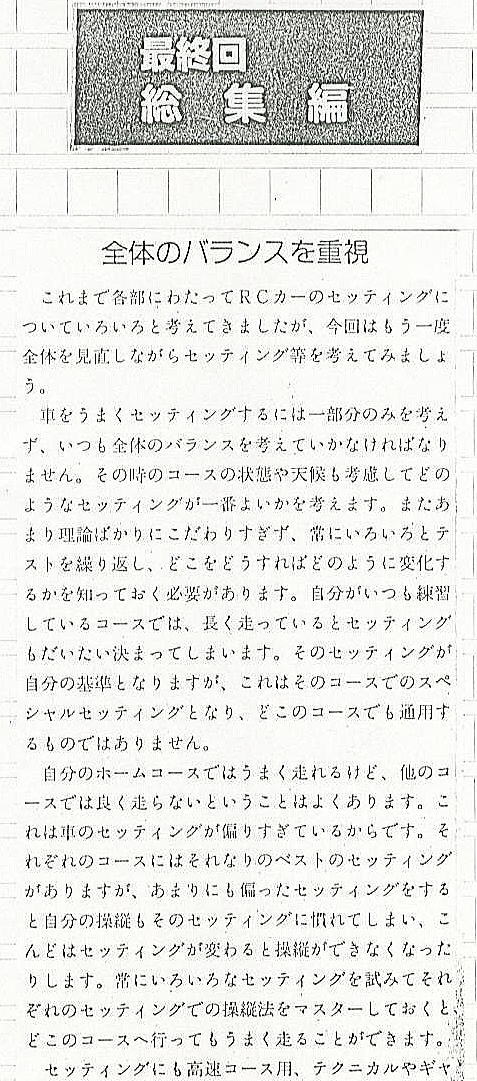 最終回
総集編
全体のバランスを重視
これまで各部にわたってＲＣカーのセッティングに
ついていろいろと考えてきましたが、今回はもう一度
全体を見直しながらセッティング等を考えてみましょ
う。
車をうまくセッティングするには一部分のみを考え
ず、いつも全体のバランスを考えていかなければなり
ません。その時のコースの状態や天候も考慮してどの
ようなセッティングが一番よいかを考えます。またあ
まり理論ばかりにこだわりすぎず、常にいろいろとテ
ストを繰り返し、どこをどうすればどのように変化す
るかを知っておく必要があります。自分がいつも練習
しているコースでは、長く走っているとセッティング
もだいたい決まってしまいます。そのセッティングが
自分の基準となりますが、これはそのコースでのスペ
シャルセッティングとなり、どこのコースでも通用す
るものではありません。
自分のホームコースではうまく走れるけど、他のコ
ースでは良く走らないということはよくあります。こ
れは車のセッティングが偏りすぎているからです。そ
れぞれのコースにはそれなりのベストのセッティング
がありますが、あまりにも偏ったセッティングをする
と自分の操縦もそのセッティングに慣れてしまい、こ
んどはセッティングが変わると操縦ができなくなった
りします。常にいろいろなセッティングを試みてそれ
ぞれのセッティングでの操縦法をマスターしておくと
どこのコースへ行ってもうまく走ることができます。
セッティングにも高速コース用、テクニカルやギャ